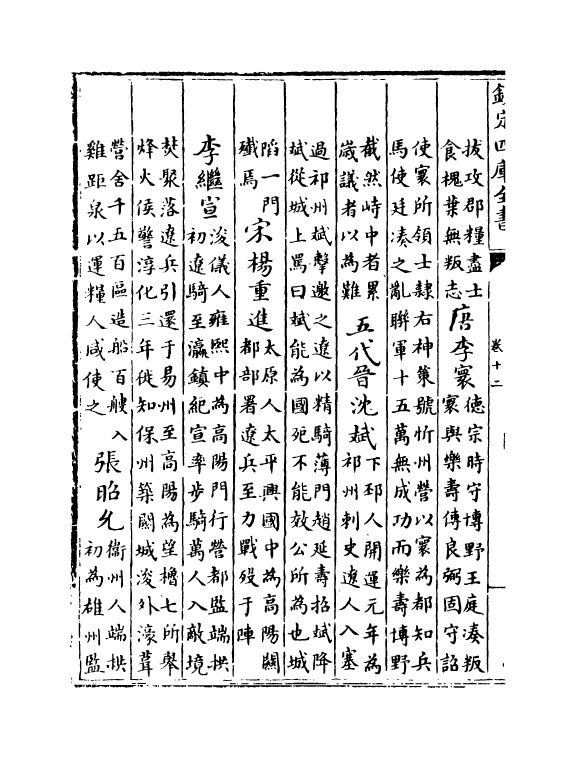 欽定四庫全書
卷十二
拔攻郡糧盡士
食槐葉無叛志
唐李寰
德宗時守博野王庭湊叛
寰與樂壽傅良弼固守詔
使寰所領士隷右神策號忻州營以寰為都知兵
馬使廷湊之亂聯軍十五萬無成功而樂壽博野
截然峙中者累
歲議者以為難
五代晉沈斌
下邳人開運元年為
祁州刺史遼人入塞
過祁州斌擊邀之遼以精騎薄門趙延壽招斌降
斌從城上罵曰斌能為國死不能效公所為也城
陷一門
殱焉
宋楊重進
太原人太平興國中為高陽關
都部署遼兵至力戰歿于陣
李繼宣
浚儀人雍熙中為高陽門行營都監端拱
初遼騎至瀛鎮紀宣率步騎萬人入敵境
焚聚落遼兵引還于易州至高陽為望櫓七所舉
烽火候警淳化三年徙知保州築關城浚外濠葺
營舍千五百區造船百艘入
雞距泉以運糧人咸使之
張昭允
衞州人端拱
初為雄州監